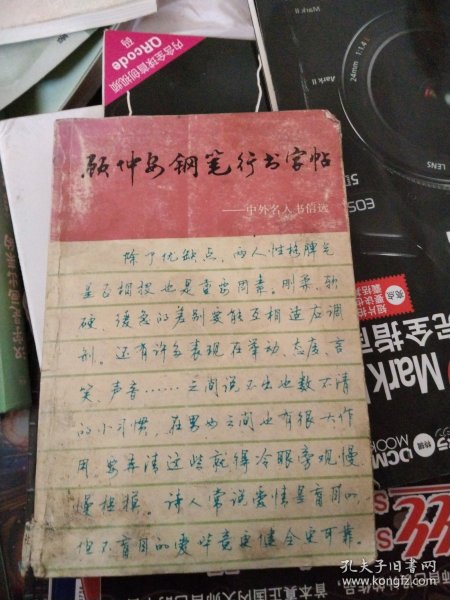 顾仲安钢笔行书字帖
——中外名人书信选
除了优缺点，两人性格脾气
是否相投也是重要因素。刚柔、软
硬、缓急的差别要能互相适应调
剂。还有许多表现在举动、态度、言
笑、声音……之间说不出也数不清
的小习惯，在男女之间也有很大作
用，要弄清这些就得冷眼旁观慢
慢捉摸。诗人常说爱情是盲目的，
但不盲目的爱毕竟更健全更可靠。
内含全球首创视频
QRcode
码
Mark II
24mm 1:1.4L
LENS
EOS
5
亮点
完全指
Mark
特辑
DCM
MOOK
孔夫子旧书网
www.kongfz.com